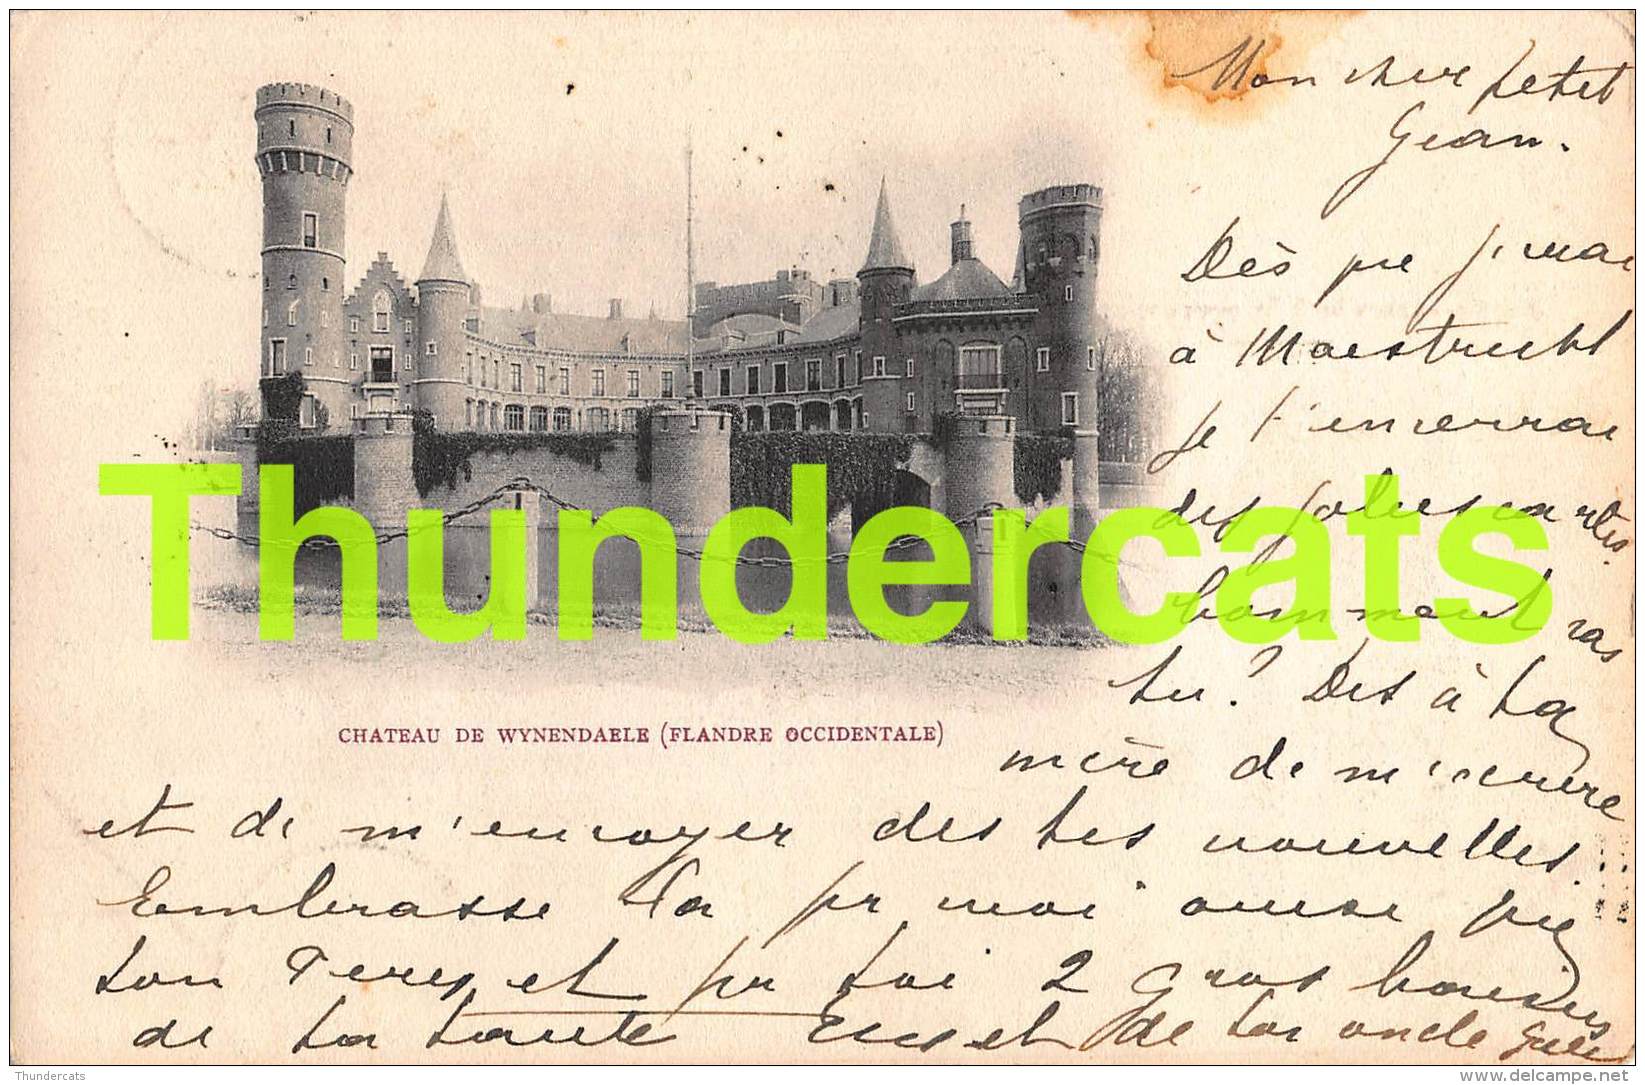 Mon cher petit
Jean.
Dès que j'irai
à Maestricht
je t'enverrai
des jolies cartes.
Comment vas
tu? Dis à ta
mère de m'écrire
et de m'envoyer des tes nouvelles.
Embrasse la pr moi ainsi que
ton Père, et pr toi 2 gros baisers
de ta tante et de ton oncle
CHATEAU DE WYNENDAELE (FLANDRE OCCIDENTALE)
Thundercats
Thundercats
delcampe.net